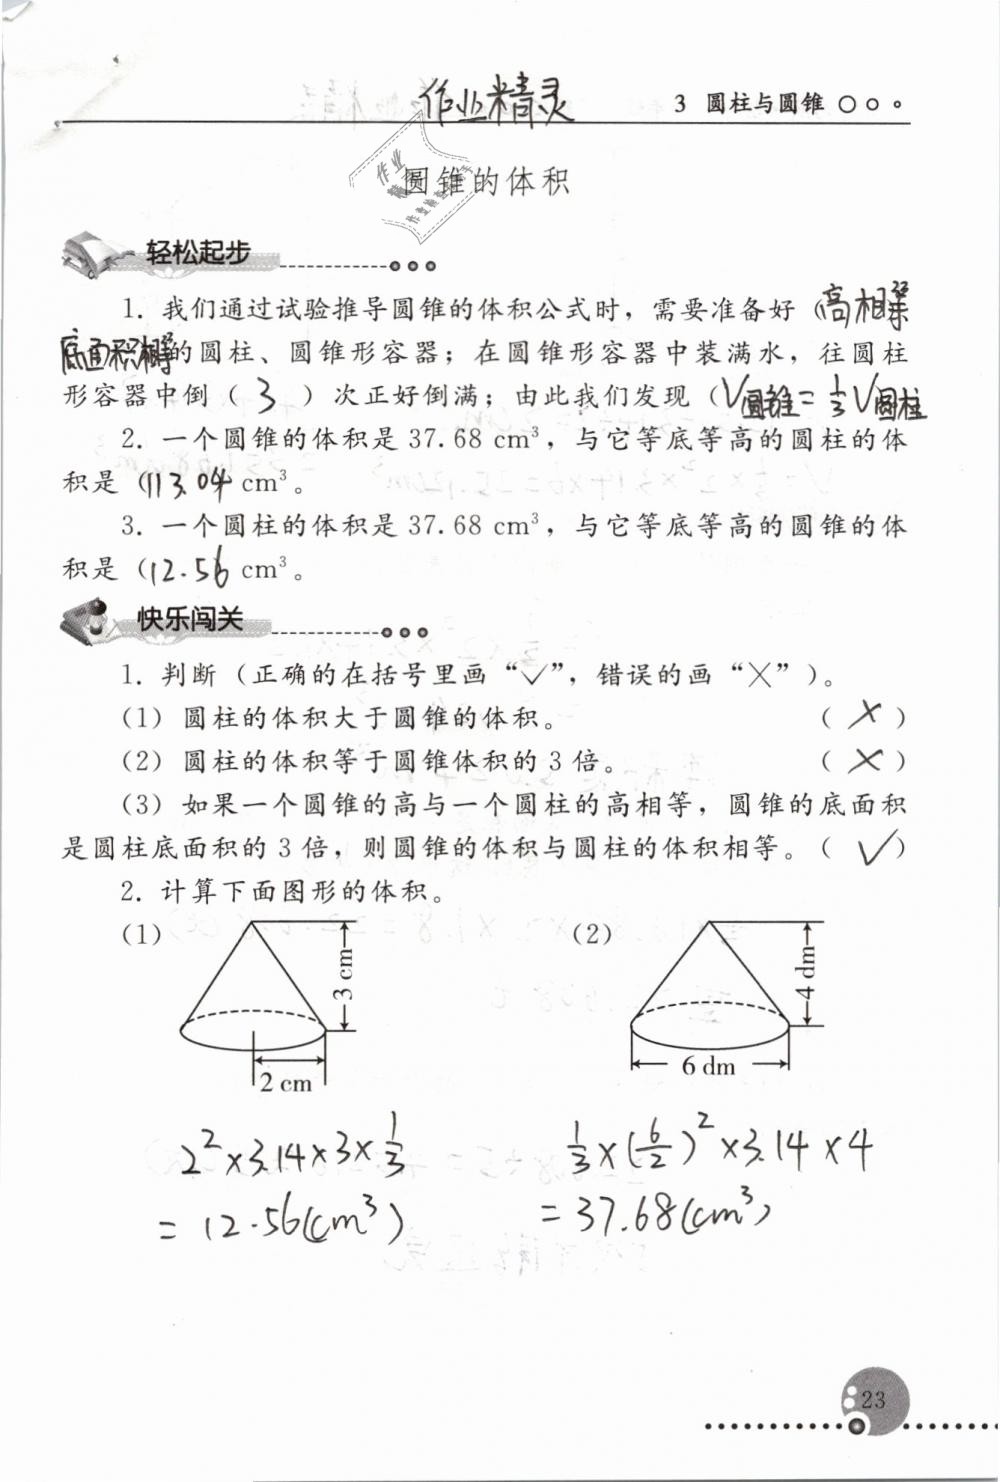 作业精灵
3 圆柱与圆锥
圆锥的体积
轻松起步
1. 我们通过试验推导圆锥的体积公式时，需要准备好（高相等
底面积相等的圆柱、圆锥形容器；在圆锥形容器中装满水，往圆柱
形容器中倒（ 3 ）次正好倒满；由此我们发现（V圆锥=1/3V圆柱
2. 一个圆锥的体积是 37.68 cm³，与它等底等高的圆柱的体
积是（113.04 cm³。
3. 一个圆柱的体积是 37.68 cm³，与它等底等高的圆锥的体
积是（12.56 cm³。
快乐闯关
1. 判断（正确的在括号里画“✓”，错误的画“×”）。
（1）圆柱的体积大于圆锥的体积。 （ × ）
（2）圆柱的体积等于圆锥体积的 3 倍。 （ × ）
（3）如果一个圆锥的高与一个圆柱的高相等，圆锥的底面积
是圆柱底面积的 3 倍，则圆锥的体积与圆柱的体积相等。（ ✓ ）
2. 计算下面图形的体积。
（1） 3 cm （2） 4 dm
2 cm 6 dm
2²×3.14×3×1/3 1/3×(6/2)²×3.14×4
=12.56(cm³) =37.68(cm³)
23